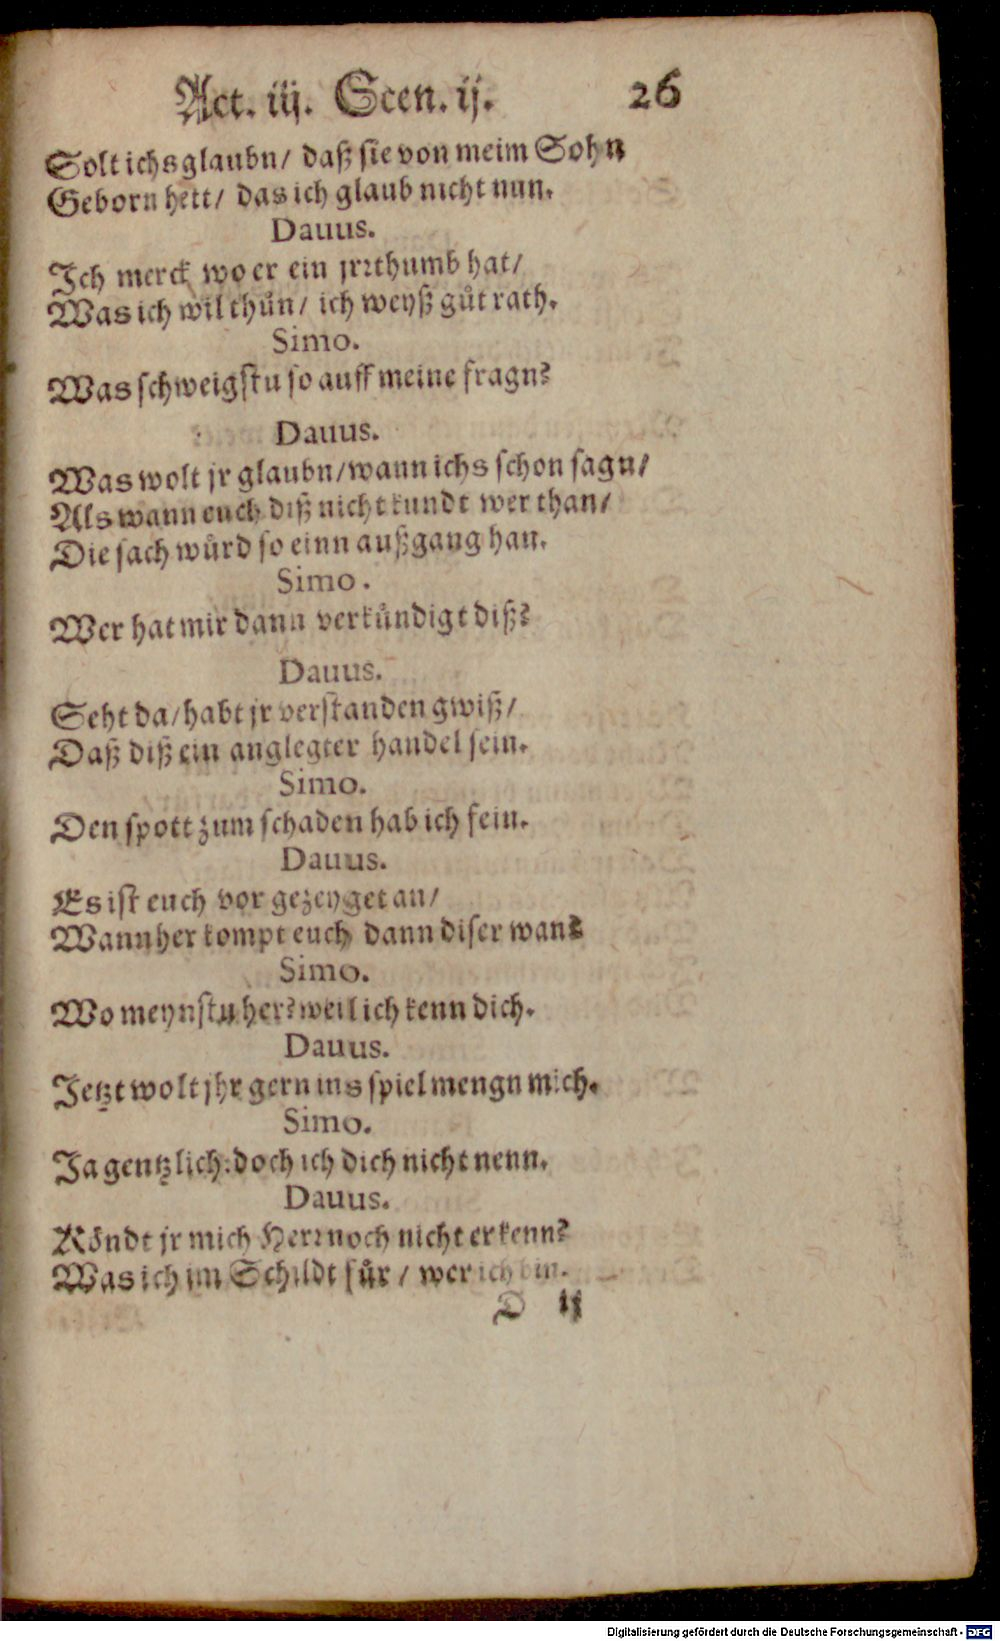 Act. iij. Scen. ij. 26
Solt ichs glaubn/ daß sie von meim Sohn
Geborn hett/ das ich glaub nicht nun.
Dauus.
Ich merck wo er ein jrrthumb hat/
Was ich wil thůn/ ich weyß gůt rath.
Simo.
Was schweigstu so auff meine fragn?
Dauus.
Was wolt jr glaubn/ wann ichs schon sagn/
Als wann euch diß nicht kundt wer than/
Die sach wůrd so einn außgang han.
Simo.
Wer hat mir dann verkůndigt diß?
Dauus.
Seht da/ habt jr verstanden gwiß/
Daß diß ein anglegter handel sein.
Simo.
Den spott zum schaden hab ich fein.
Dauus.
Es ist euch vor gezeyget an/
Wannher kompt euch dann diser wan?
Simo.
Wo meynstu her? weil ich kenn dich.
Dauus.
Jetzt wolt jhr gern ins spiel mengn mich.
Simo.
Ja gentzlich: doch ich dich nicht nenn.
Dauus.
Kőndt jr mich Herr noch nicht erkenn?
Was ich im Schildt fůr / wer ich bin.
D ij
Digitalisierung gefördert durch die Deutsche Forschungsgemeinschaft - DFG